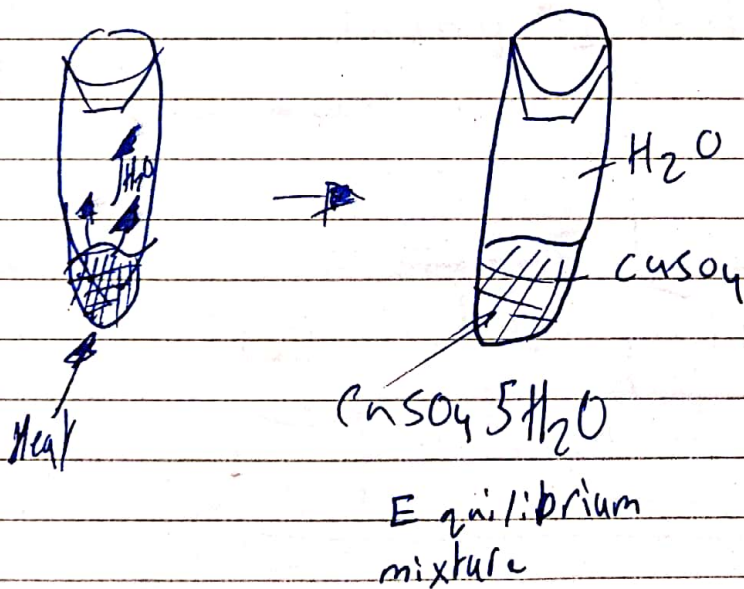 H₂O
H₂O
CuSO₄
Heat
CuSO₄ 5H₂O
Equilibrium
mixture